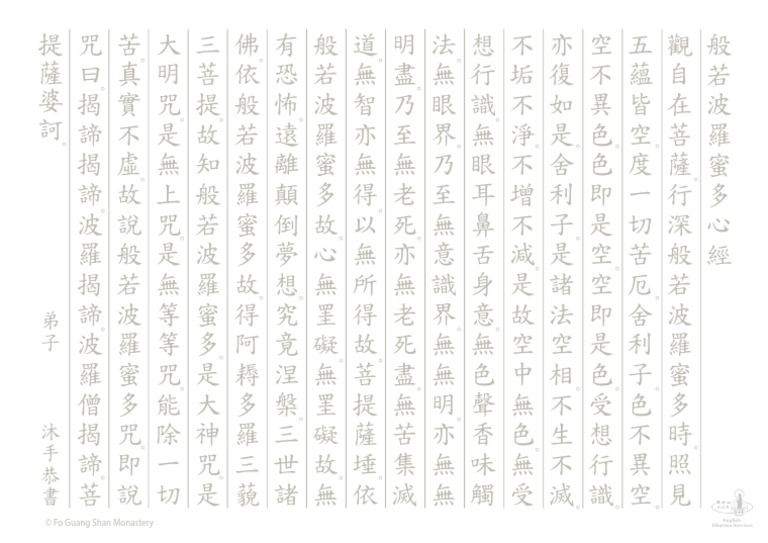 般若波羅蜜多心經
觀自在菩薩。行深般若波羅蜜多時。照見
五蘊皆空。度一切苦厄。舍利子。色不異空。
空不異色。色即是空。空即是色。受想行識。
亦復如是。舍利子。是諸法空相。不生不滅。
不垢不淨。不增不減。是故空中無色。無受
想行識。無眼耳鼻舌身意。無色聲香味觸
法。無眼界。乃至無意識界。無無明。亦無無
明盡。乃至無老死。亦無老死盡。無苦集滅
道。無智亦無得。以無所得故。菩提薩埵。依
般若波羅蜜多故。心無罣礙。無罣礙故。無
有恐怖。遠離顛倒夢想。究竟涅槃。三世諸
佛。依般若波羅蜜多故。得阿耨多羅三藐
三菩提。故知般若波羅蜜多。是大神咒。是
大明咒。是無上咒。是無等等咒。能除一切
苦。真實不虛。故說般若波羅蜜多咒。即說
咒曰。揭諦揭諦。波羅揭諦。波羅僧揭諦。菩
提薩婆訶。
弟子 沐手恭書
© Fo Guang Shan Monastery